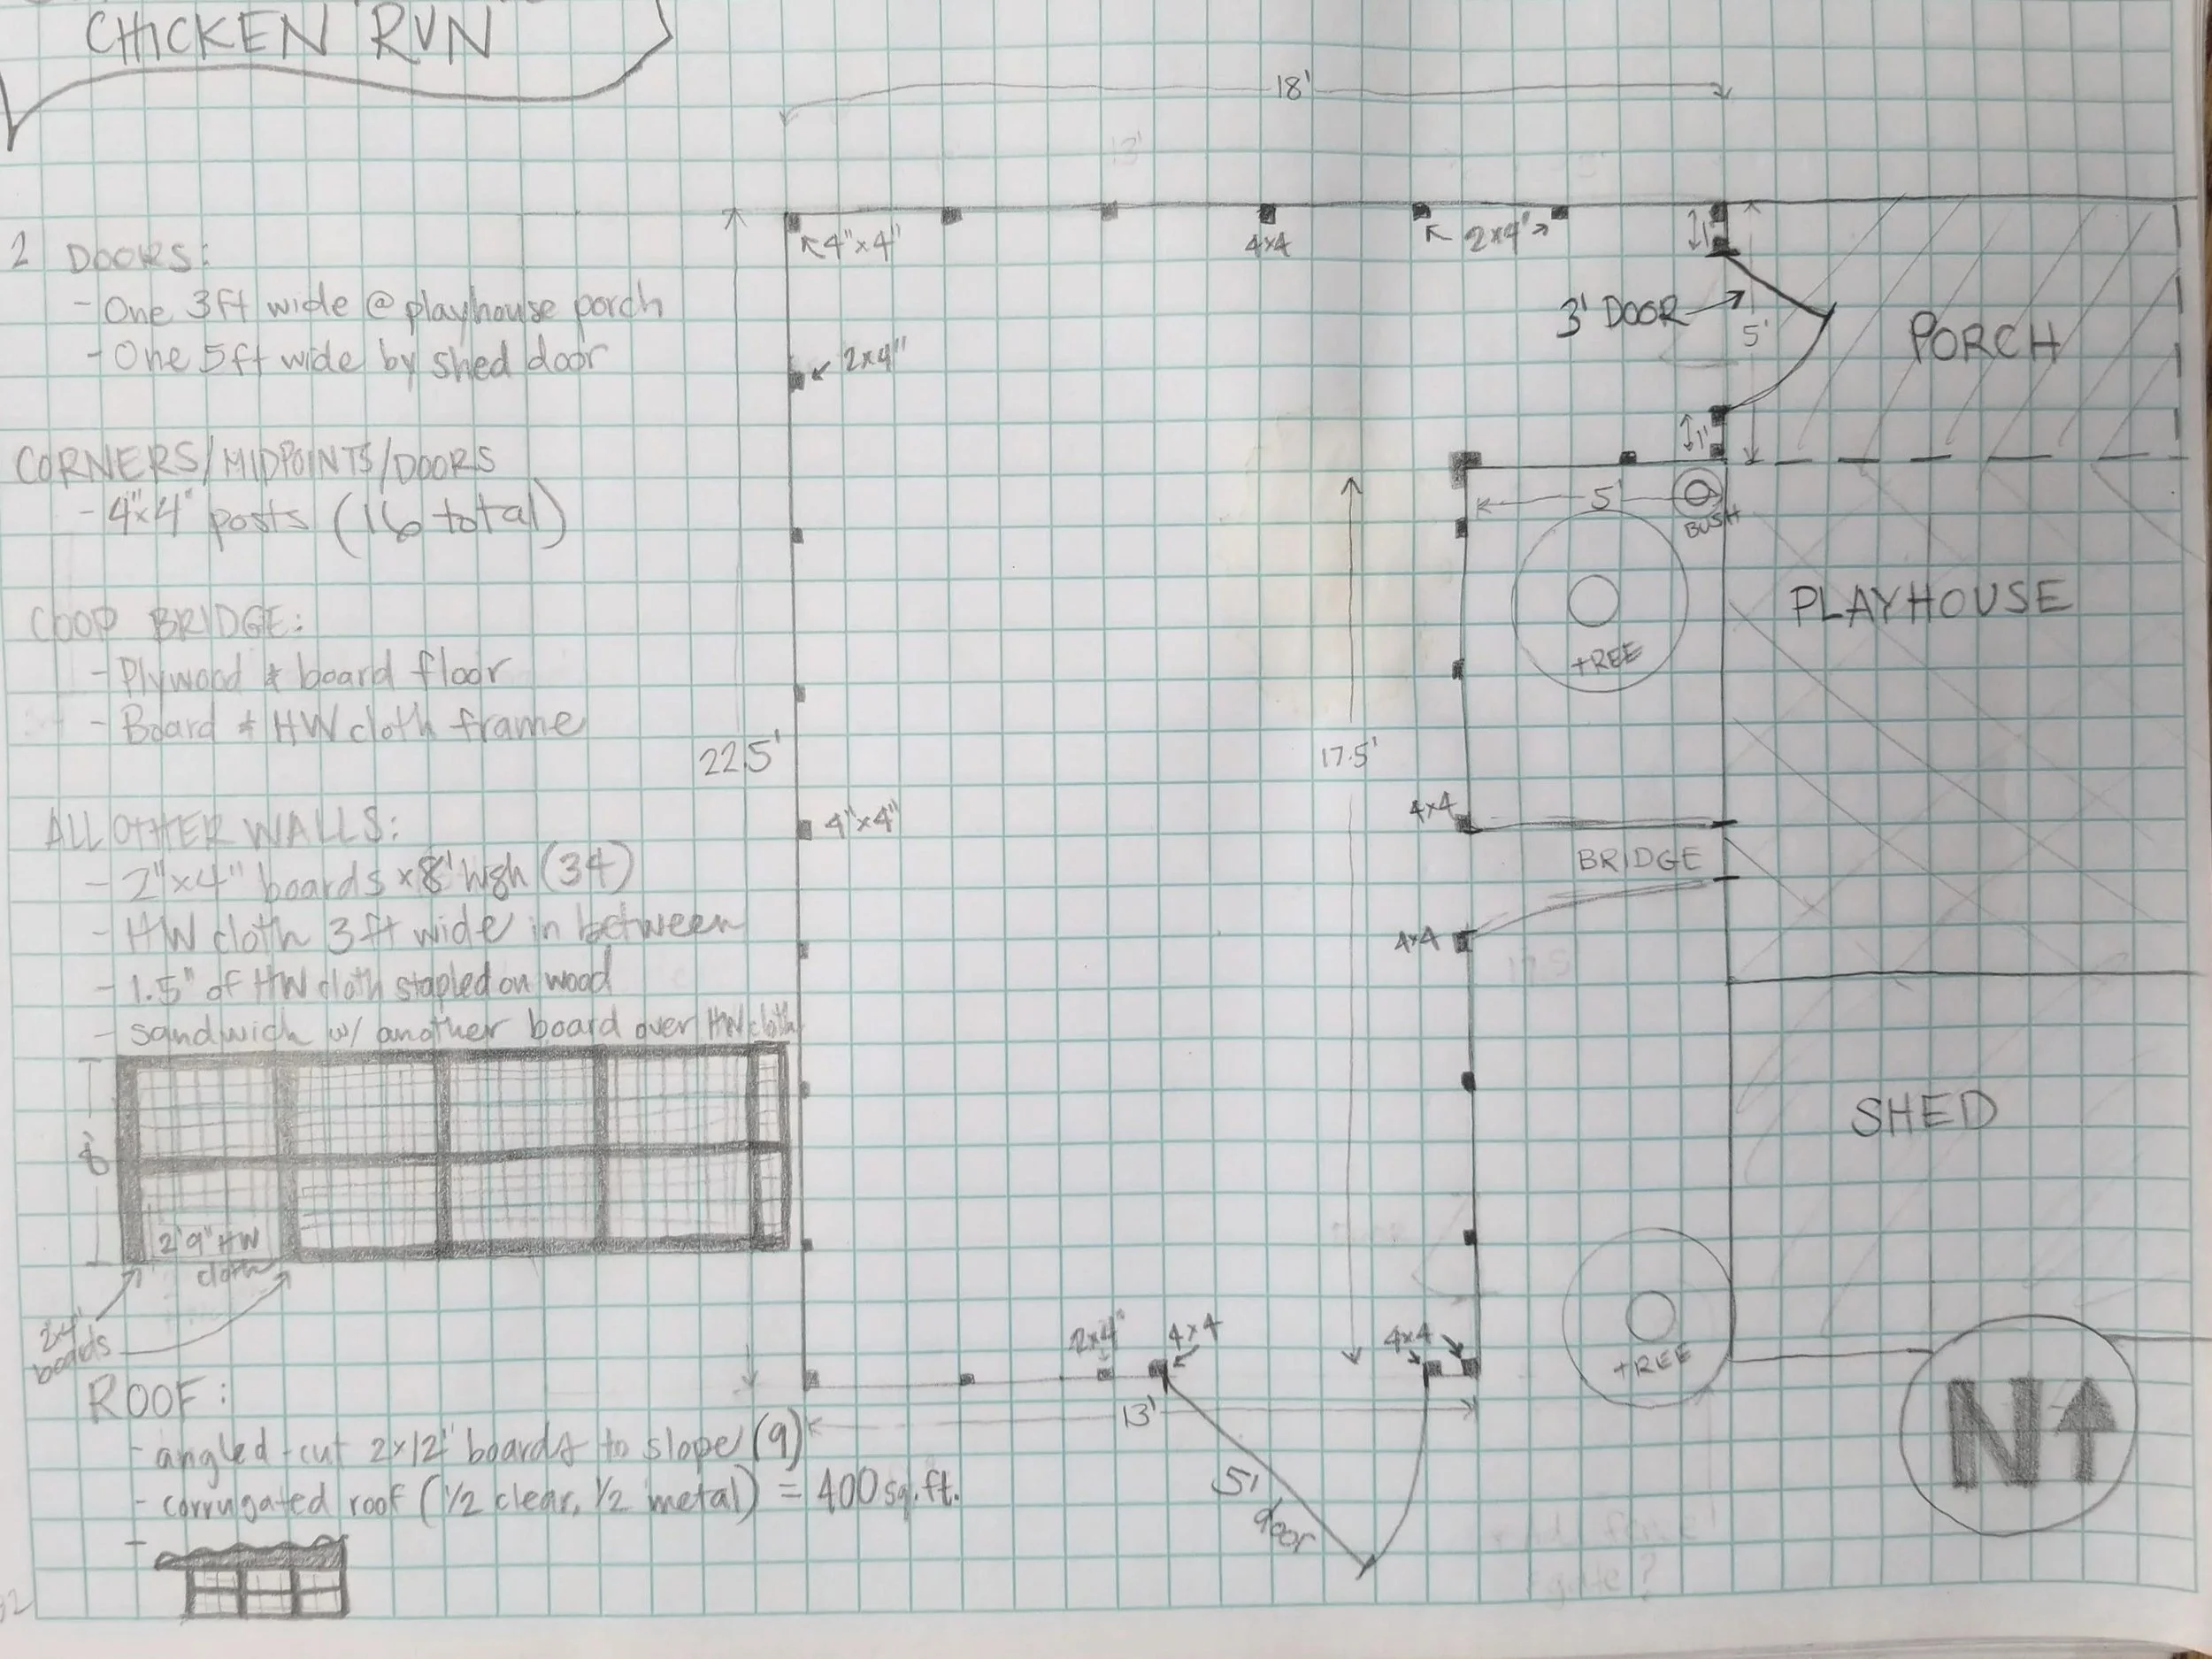 CHICKEN RUN
18'
13'
2 DOORS:
- One 3ft wide @ playhouse porch
- One 5ft wide by shed door
CORNERS/MIDPOINTS/DOORS
- 4"x4" posts (16 total)
COOP BRIDGE:
- Plywood & board floor
- Board & HW cloth frame
ALL OTHER WALLS:
- 2"x4" boards x 8' high (34)
- HW cloth 3ft wide in between
- 1.5" of HW cloth stapled on wood
- sandwich w/ another board over HW cloth
8'
2'9" HW
cloth
2x4"
boards
ROOF:
- angled-cut 2x12" boards to slope (9)
- corrugated roof (1/2 clear, 1/2 metal) = 400 sq.ft.
-
4"x4"
4x4
2x4"
1'
3' DOOR
5'
PORCH
2x4"
1'
5'
BUSH
TREE
PLAYHOUSE
22.5'
17.5'
4"x4"
4x4
BRIDGE
4x4
17.5
SHED
2x4"
4x4
4x4
TREE
13'
5'
door
N
gate?